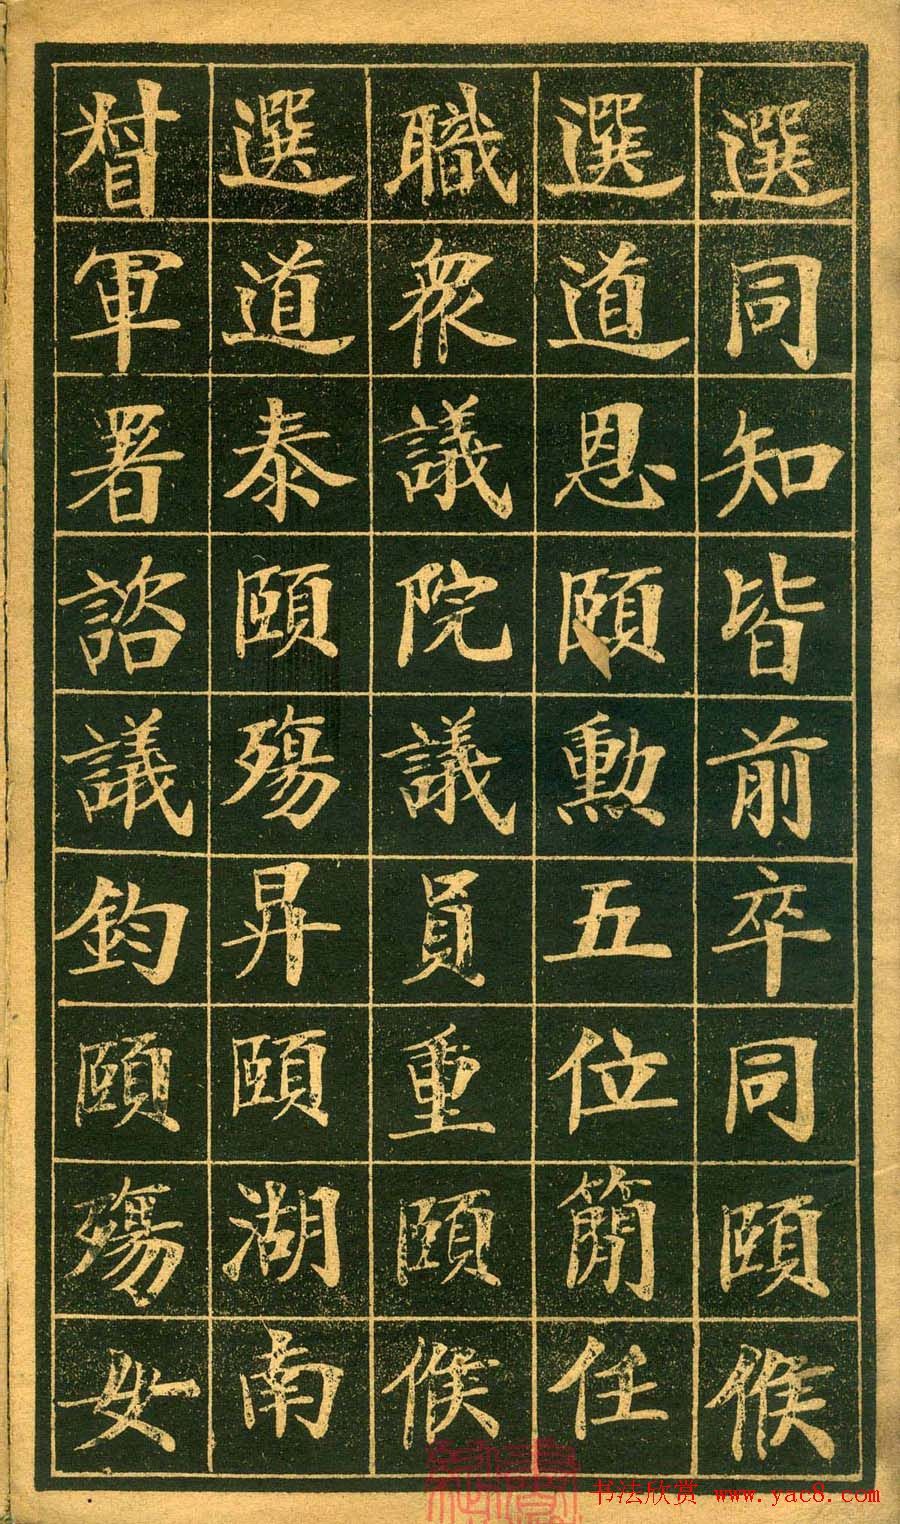 選同知皆前卒同頤候
選道恩頤勳五位簡任
職衆議院議員重頤候
選道泰頤殤昇頤湖南
督軍署諮議鈞頤殤女
书法欣赏 www.yac8.com